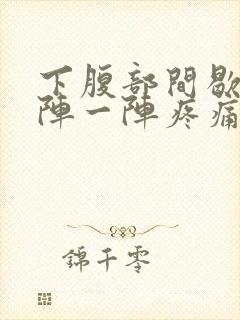 下腹部間歇
陣一陣疼痛
錦千零